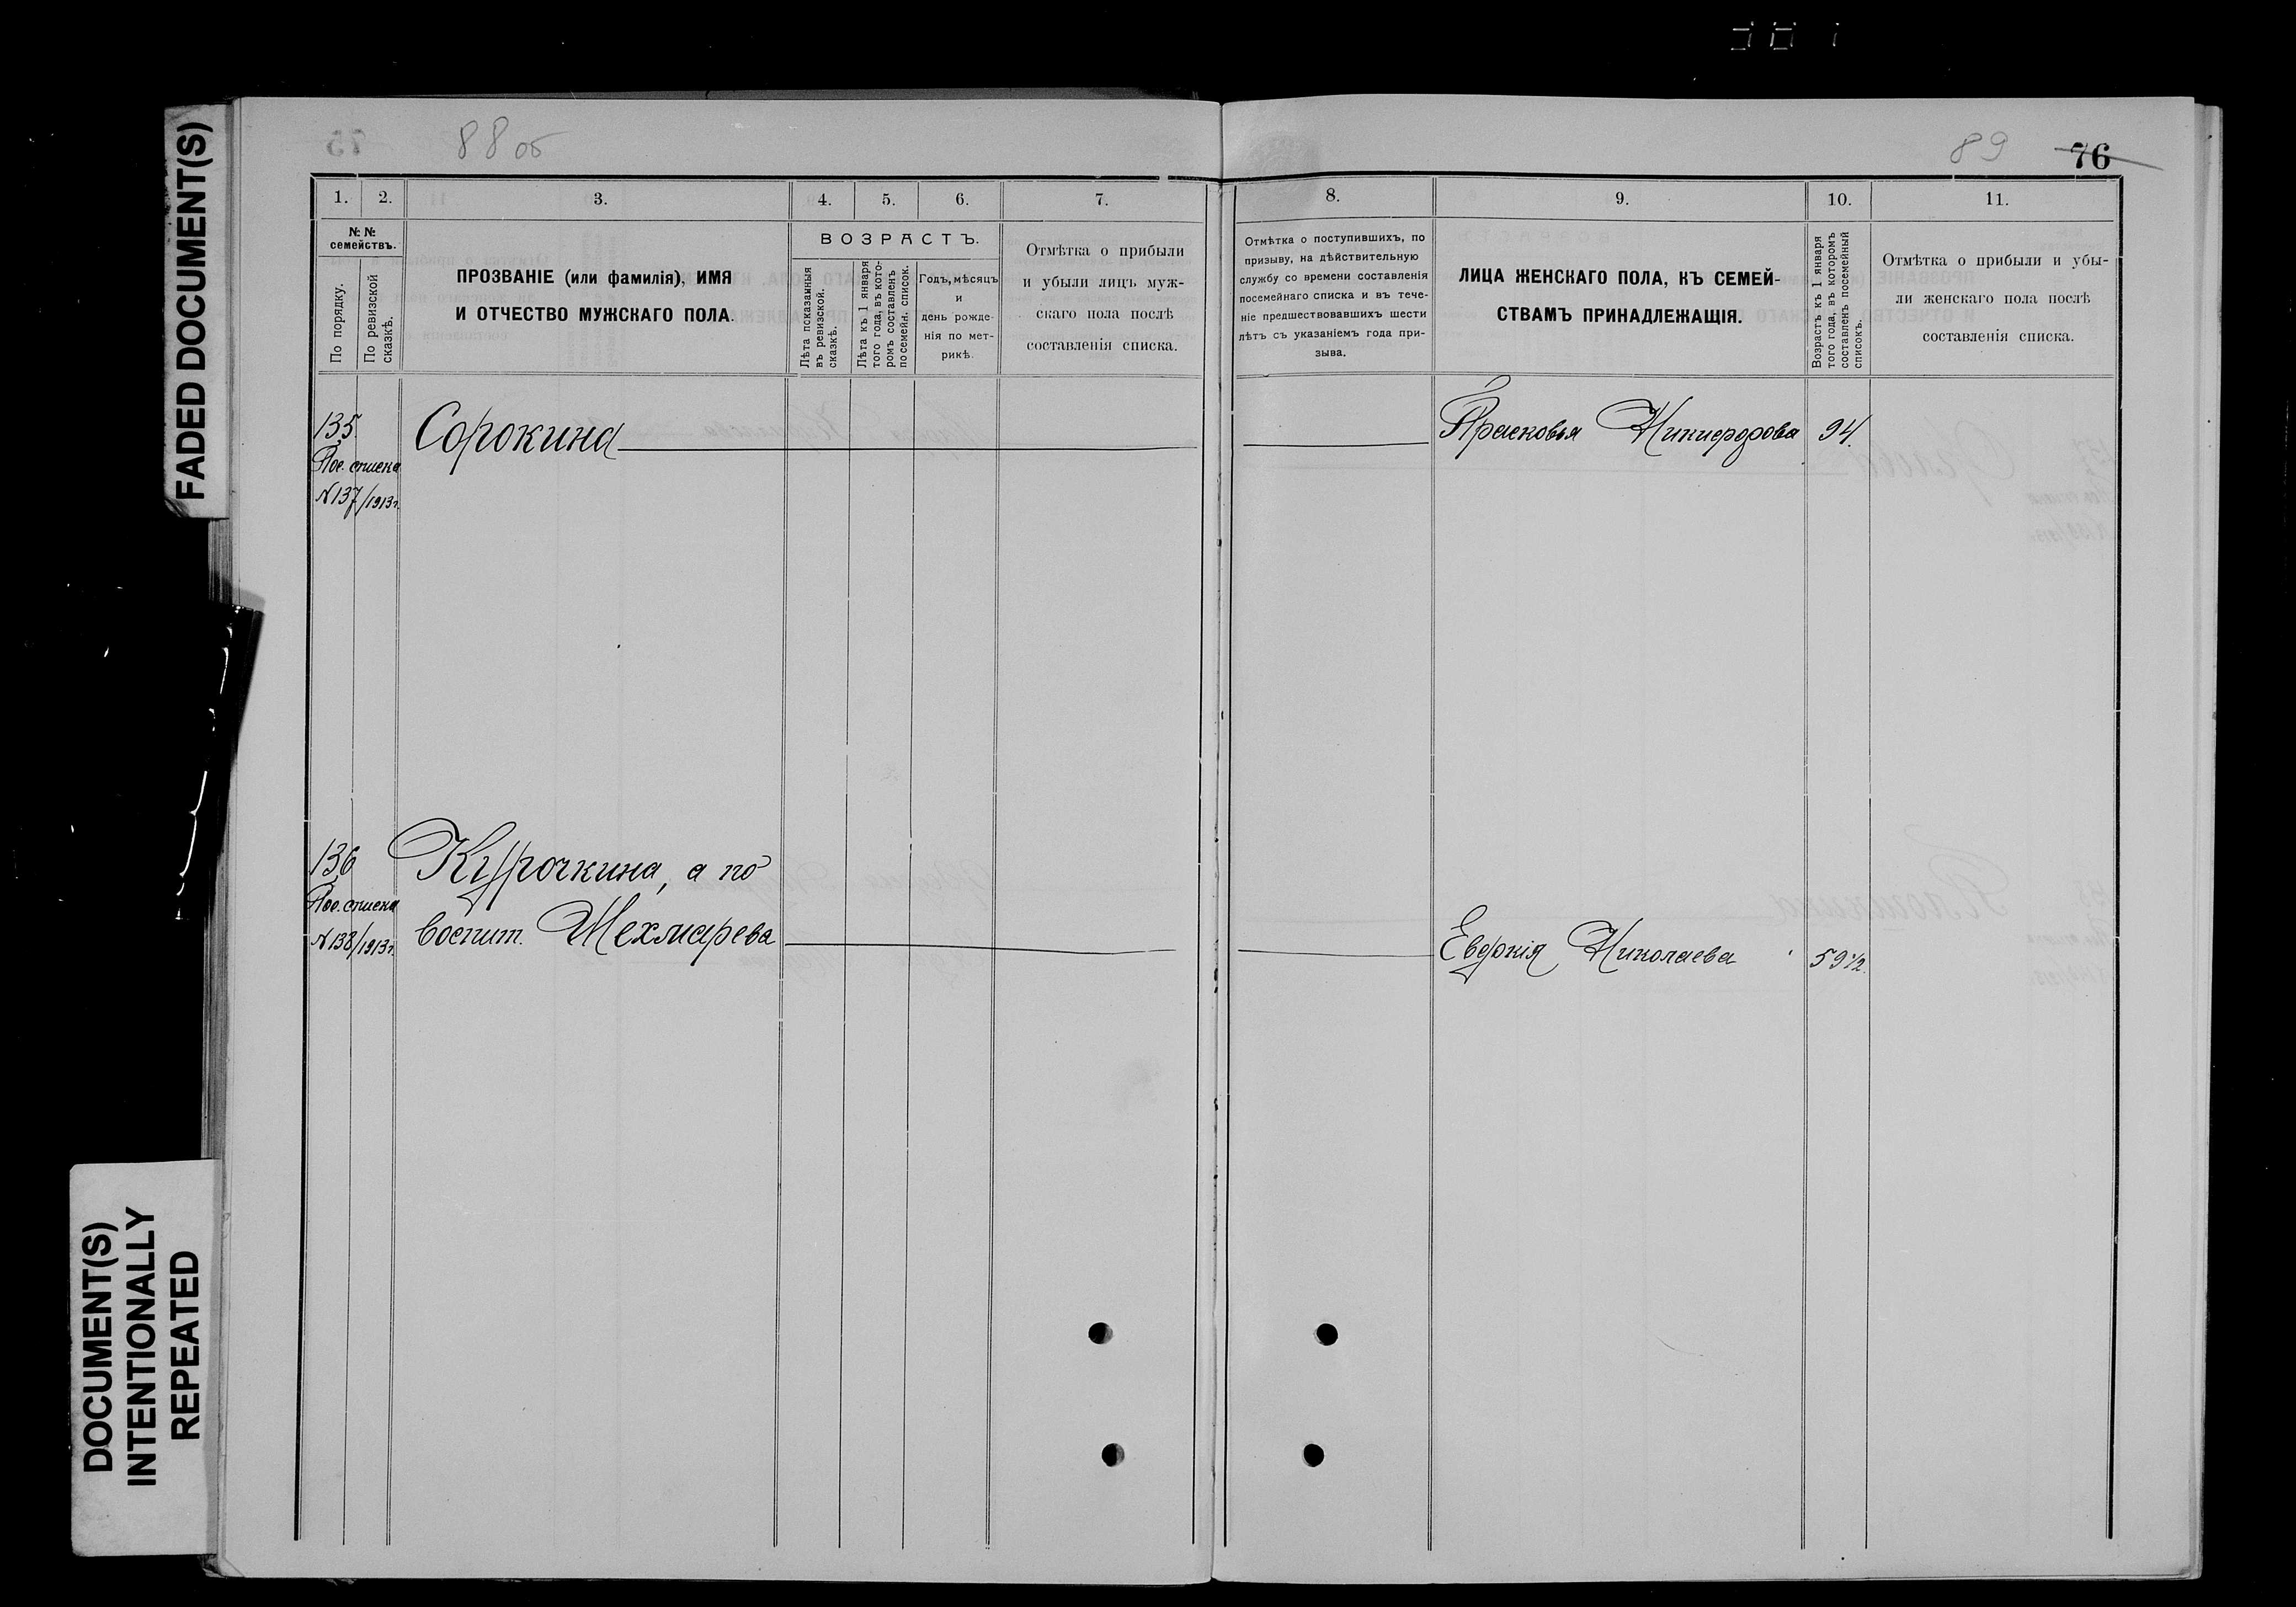 FADED DOCUMENT(S)
DOCUMENT(S)
INTENTIONALLY
REPEATED
88 об
1. 2. 3. 4. 5. 6. 7.
№ №
семействъ.
По порядку.
По ревизской
сказкѣ.
ПРОЗВАНІЕ (или фамилія), ИМЯ
И ОТЧЕСТВО МУЖСКАГО ПОЛА.
ВОЗРАСТЪ.
Лѣта показанныя
въ ревизской.
сказкѣ.
Лѣта къ 1 января
того года, въ кото-
ромъ составленъ
посемейн. списокъ.
Годъ, мѣсяцъ
и
день рожде-
нія по мет-
рикѣ.
Отмѣтка о прибыли
и убыли лицъ муж-
скаго пола послѣ
составленія списка.
135
Пос. списка
N137/1913г.
Сорокина
136
Пос. списка
N138/1913г.
Курочкина, а по
воспит.
89 76
8. 9. 10. 11.
Отмѣтка о поступившихъ, по
призыву, на дѣйствительную
службу со времени составленія
посемейнаго списка и въ тече-
ніе предшествовавшихъ шести
лѣтъ съ указаніемъ года при-
зыва.
ЛИЦА ЖЕНСКАГО ПОЛА, КЪ СЕМЕЙ-
СТВАМЪ ПРИНАДЛЕЖАЩІЯ.
Возрастъ къ 1 января
того года, въ которомъ
составленъ посемейный
списокъ.
Отмѣтка о прибыли и убы-
ли женскаго пола послѣ
составленія списка.
Прасковья Никифорова 94.
Евдокія Николаева 59 1/2.